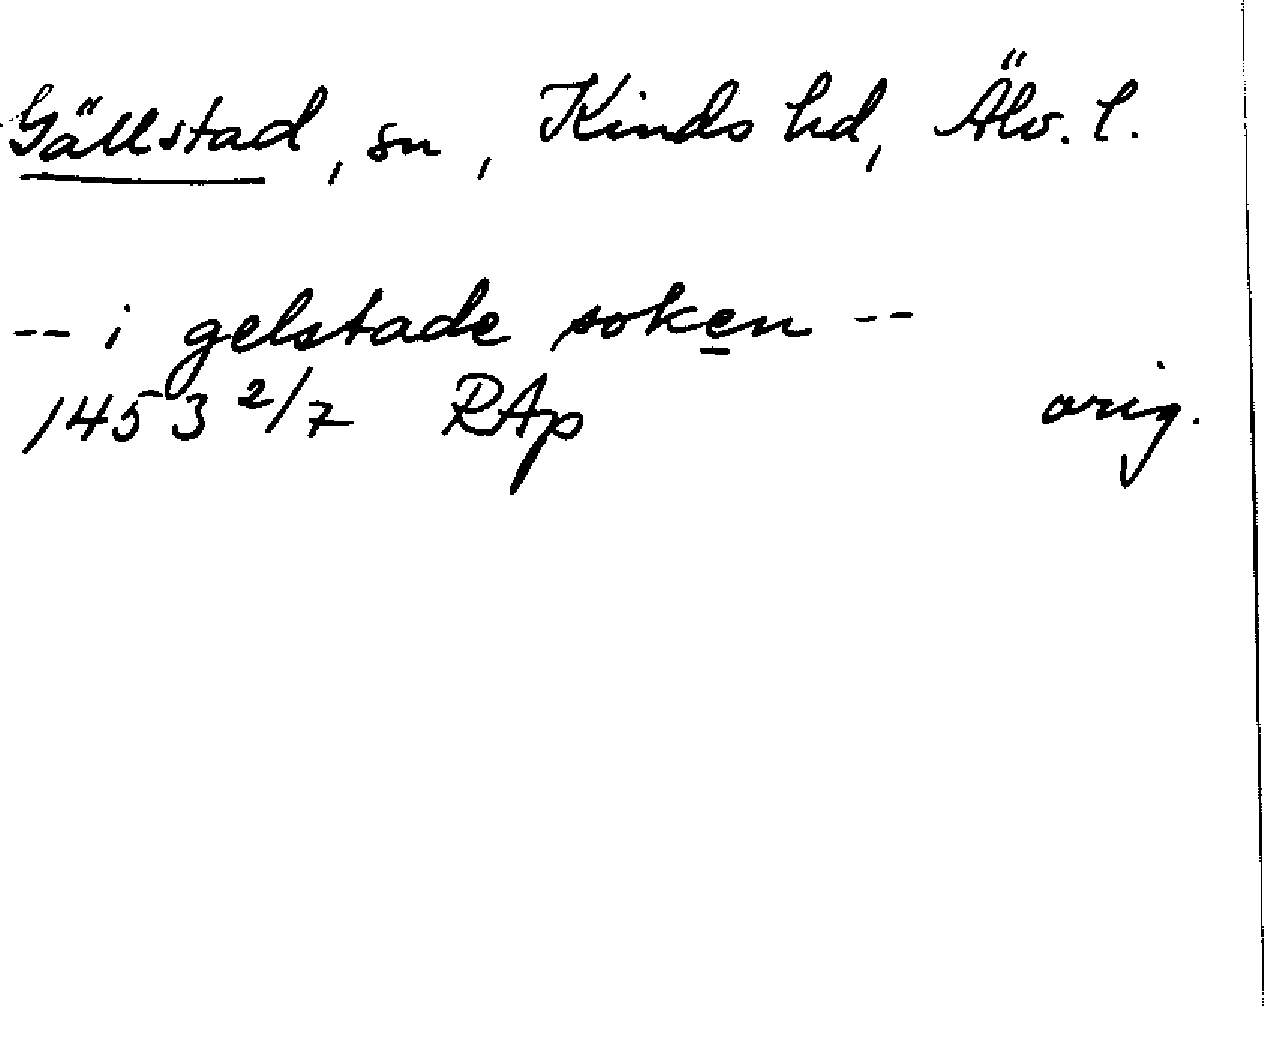 Gällstad, sn, Kinds hd, Älv. l.
-- i gelstade soken --
1453 2/7 RAp orig.